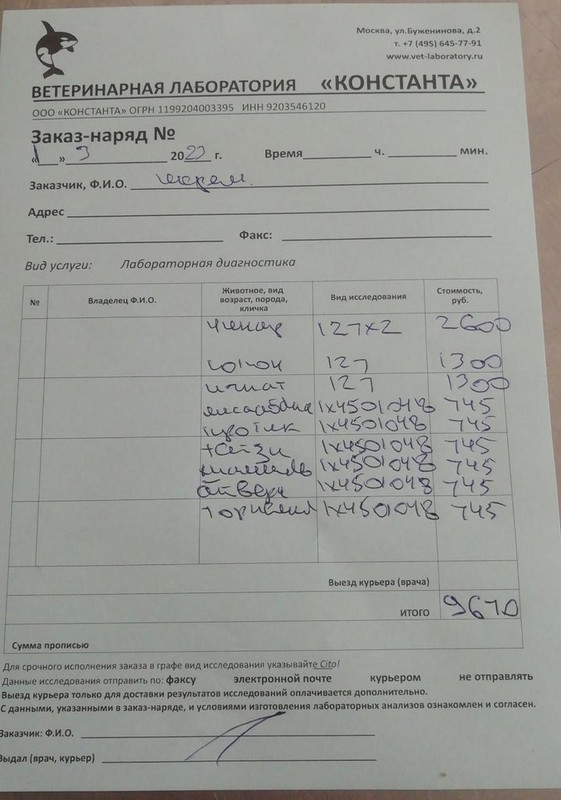 Москва, ул.Буженинова, д.2
т. +7 (495) 645-77-91
www.vet-laboratory.ru
ВЕТЕРИНАРНАЯ ЛАБОРАТОРИЯ «КОНСТАНТА»
ООО «КОНСТАНТА» ОГРН 1199204003395 ИНН 9203546120
Заказ-наряд №
«1» 3 2023 г. Время ч. мин.
Заказчик, Ф.И.О.
Адрес
Тел.: Факс:
Вид услуги: Лабораторная диагностика
№ Владелец Ф.И.О. Животное, вид возраст, порода, кличка Вид исследования Стоимость, руб.
127x2 2600
127 1300
127 1300
1x4501048 745
1x4501048 745
1x4501048 745
1x4501048 745
1x4501048 745
1x4501048 745
Выезд курьера (врача)
ИТОГО 9670
Сумма прописью
Для срочного исполнения заказа в графе вид исследования указывайте Cito!
Данные исследования отправить по: факсу электронной почте курьером не отправлять
Выезд курьера только для доставки результатов исследований оплачивается дополнительно.
С данными, указанными в заказ-наряде, и условиями изготовления лабораторных анализов ознакомлен и согласен.
Заказчик: Ф.И.О.
Выдал (врач, курьер)